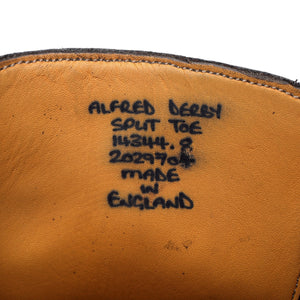 ALFRED DERBY
SPLIT TOE
14344.
202970
MADE
IN
ENGLAND